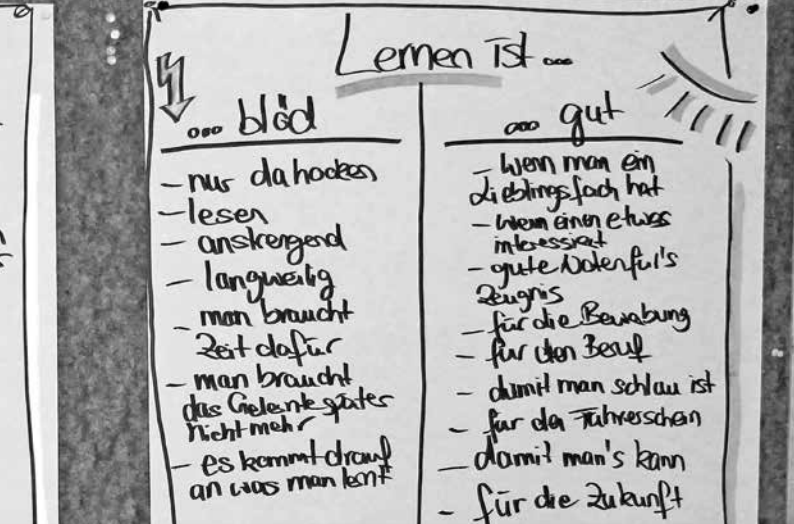 Lernen ist ...
... blöd
- nur dahocken
- lesen
- anstrengend
- langweilig
- man braucht
Zeit dafür
- man braucht
das Gelernte später
nicht mehr
- es kommt drauf
an was man lernt
... gut
- wenn man ein
Lieblingsfach hat
- wenn einen etwas
interessiert
- gute Noten für's
Zeugnis
- für die Bewerbung
- für den Beruf
- damit man schlau ist
- für den Führerschein
- damit man's kann
- für die Zukunft